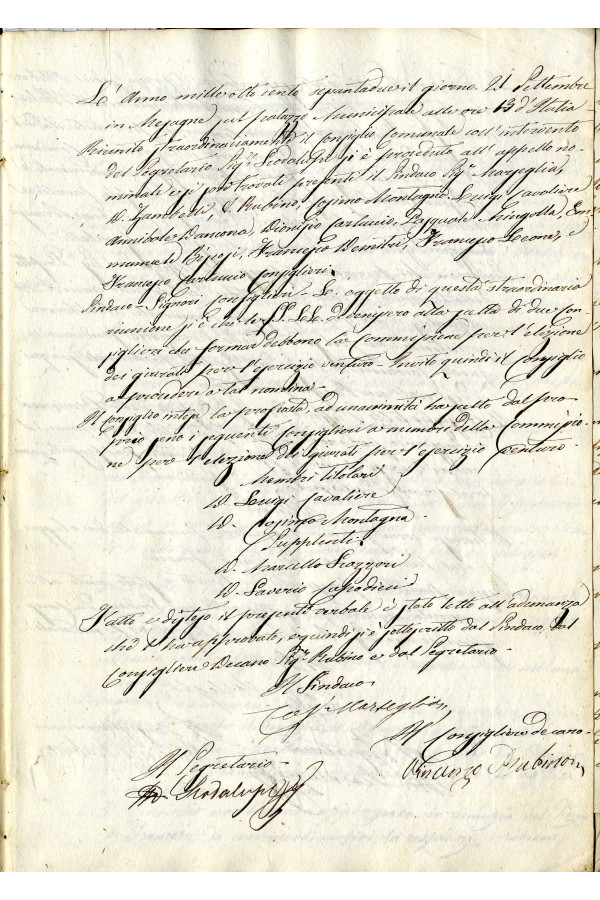 L'Anno mille otto cento settantadue il giorno 21 Settembre
in Mesagne sul palazzo Municipale alle ore 13 d'Italia
Riunito straordinariamente il Consiglio comunale coll'intervento
del Segretario Sig.r si è proceduto all'appello no-
minale e si sono trovati presenti il Sindaco Sig.r Marseglia,
D. Zambelli, V. Rubino, Cosimo Montagna, Luigi Cavaliere
Annibale Dancona, Dionisio Carluccio, Pasquale Mingolla, Em-
manuele Francesco Demitri, Francesco Leone, e
Francesco Carluccio Consiglieri.
Sindaco - Signori Consiglieri - Lo oggetto di questa straordinaria
riunione si è che le SS. LL. devengano alla scelta di due Con-
siglieri che formar debbono la Commissione per l'elezione
dei giurati per l'esercizio venturo - Invito quindi il Consiglio
a procedere a tal nomina -
Il Consiglio intesa la proposta, ad unanimità ha scelto dal pro-
prio seno i seguenti Consiglieri a membri della Commissio-
ne per l'elezione dei giurati per l'esercizio venturo -
Membri titolari
D. Luigi Cavaliere
D. Cosimo Montagna
Supplenti
D. Marcello Scazzeri
D. Saverio Capodieci
Fatto e disteso il presente verbale è stato letto all'adunanza
che l'ha approvato, e quindi si è sottoscritto dal Sindaco, dal
Consigliere Decano Sig.r Rubino e dal Segretario -
Il Sindaco
Marseglia
Il Consigliere decano -
Vincenzo Rubino
Il Segretario -